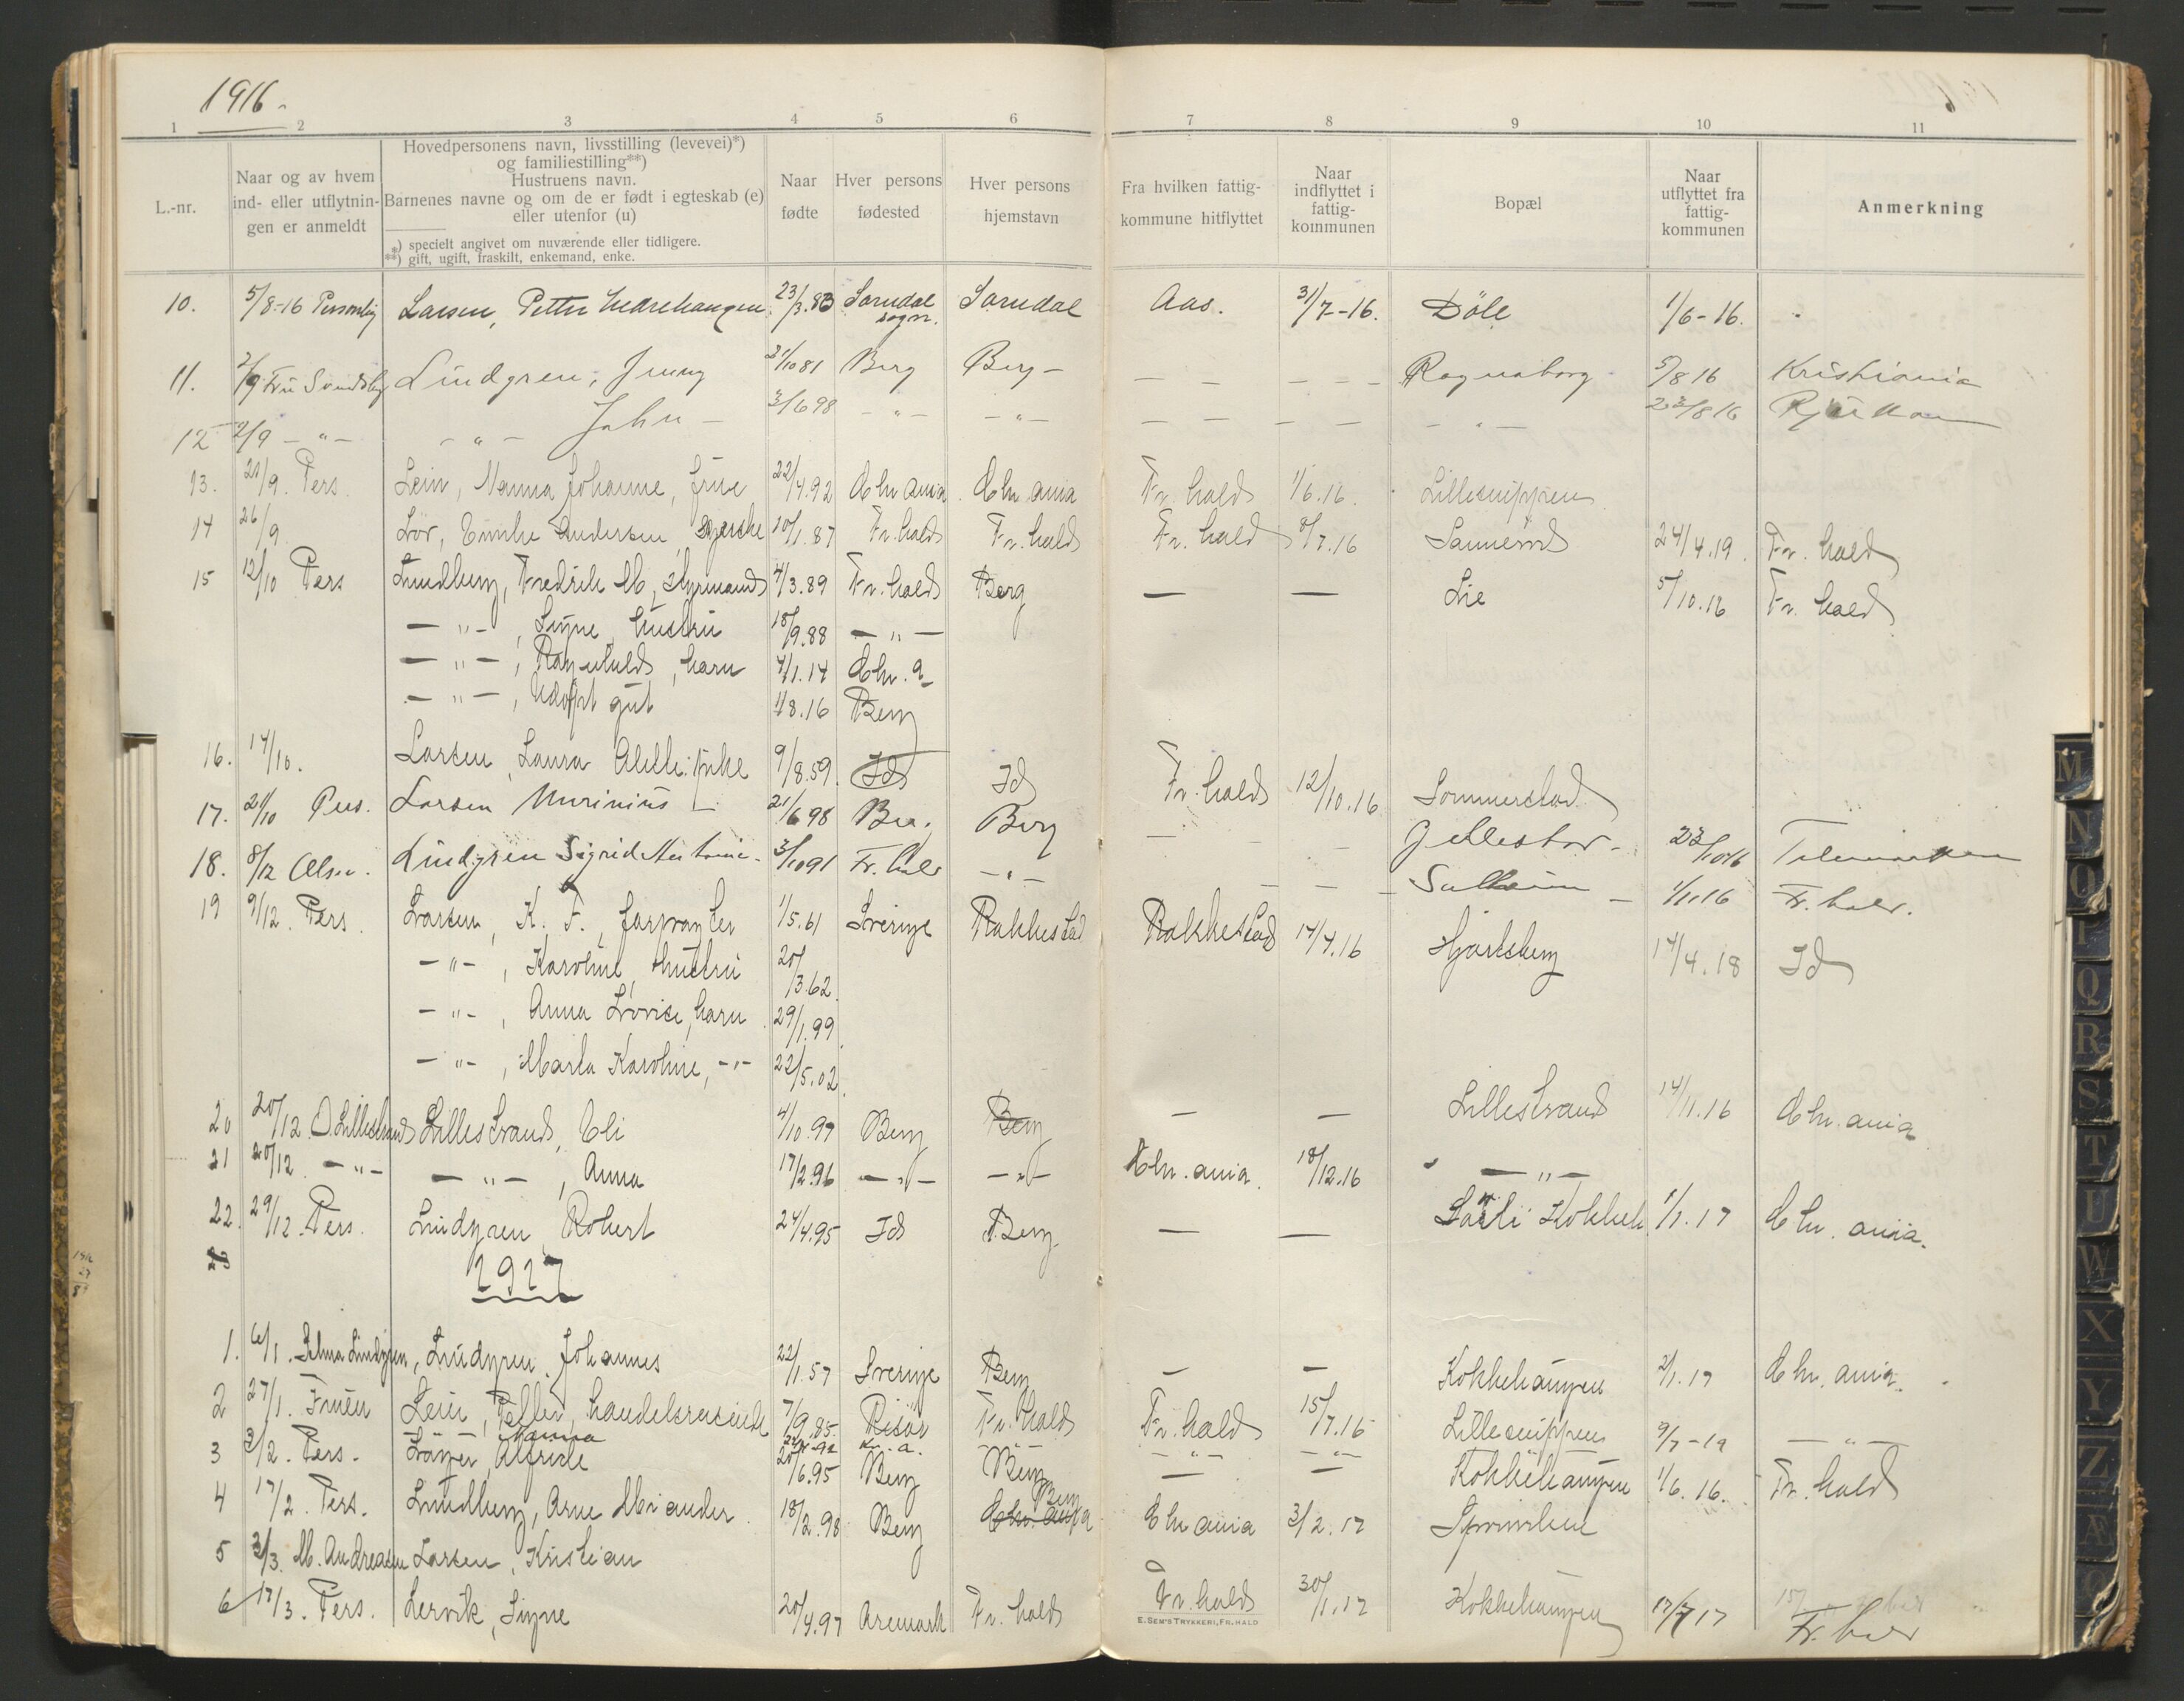 1916.
1 2 3 4 5 6 7 8 9 10 11
L.-nr.
Naar og av hvem ind- eller utflytnin- gen er anmeldt
Hovedpersonens navn, livsstilling (levevei)*)
og familiestilling**)
Hustruens navn.
Barnenes navne og om de er født i egteskab (e)
eller utenfor (u)
*) specielt angivet om nuværende eller tidligere.
**) gift, ugift, fraskilt, enkemand, enke.
Naar fødte
Hver persons fødested
Hver persons hjemstavn
Fra hvilken fattig- kommune hitflyttet
Naar indflyttet i fattig- kommunen
Bopæl
Naar utflyttet fra fattig- kommunen
Anmerkning
10. 5/8-16 Personlig Larsen, Petter 23/3.83 sogn. Aas. 31/7-16. Döle 1/6-16.
11. 2/9 Fru Lindgren, Jenny 31/10 81 Berg Berg - — - — - - Ragnaborg 5/8 16 Kristiania
12 2/9 - " - - " - John - 3/6 98 - " - - " - — — — — - " - 23/8 16
13. 20/9. Pers. Lein, Nanna Johanne, frue 22/4.92 Chr ania Chr ania Fr. hald 1/6.16. Lillesnippen
14 26/9 Lör, Andersen, 10/1.87 Fr. hald Fr. hald Fr. hald 8/7.16 Sannerød 24/4.19. Fr. hald
15 12/10 Pers Lundberg, Fredrik M, styrmand 4/3.89 Fr. hald Berg — — Lie 5/10.16 Fr. hald
— " —, Signe, hustru 18/9.88 — " —
— " —, Ragnhild, barn 4/1.14 Chr. a
— " —, Udøpt gut 1/8.16 Berg
16. 14/10. Larsen, Laura 9/8.59. Id Id Fr. hald 12/10.16 Sommerstad
17. 21/10 Pers. Larsen Marinius 21/6 98 Ber. Berg — - - 23/10 16 Telemarken
18. 8/12 Olsen. Lindgren Sigrid Antonie - 3/10 91 Fr. hald - " - - - - Solheim - 1/11 16 Fr. hald.
19 9/12. Pers. Larsen, K. F., forpagter 1/5.61 Sverige Rakkestad Rakkestad 14/4.16 Hjorteberg 14/4.18 Id
- " -, Karoline, hustru 20/3.62.
- " -, Anna Lovise, barn 29/1.99.
- " -, Marta Karoline, - " - 22/5.02.
20 20/12. O. Lillestrand Lillestrand, Eli 4/10.97 Berg Berg — — Lillestrand 14/11.16 Chr. ania
21 20/12. - " - — " —, Anna 17/2.96 — " — — " — Chr. ania. 18/12.16 — " —
22. 29/12. Pers. Lindgren, Robert 24/4.95 Id Berg — — 1/1.17 Chr. ania.
23
1917
1. 6/1. Selma Lindgren, Lindgren, Johannes 22/1.57 Sverige Berg — — Kokkehaugen 2/1.17 Chr. ania.
2 27/1. Fruen Lein, Petter, handelsreisende 7/9.85. Risör Fr. hald Fr. hald 15/7.16 Lillesnippen 9/7-19 — " —
Nanna 22/4-92 Kr. a. - " - - " - - " -
3 3/2. Pers. Alfrede 20/6.95 Berg Berg — — Kokkehaugen 1/6.16. Fr. hald
4 17/2. Pers. Lundberg, Arne 18/2.98 Berg Chr. ania Berg Chr ania 3/2.17
5 3/3. M. Andreasen Larsen, Kristian
6 17/3. Pers. Lervik, Signe 20/4.97 Aremark Fr. hald Fr. hald 30/1.17 Kokkehaugen 17/7 17 Fr. hald
E. SEM'S TRYKKERI, FR.HALD
M
N
O
P
Q
R
S
T
U
W
X
Y
Z
Æ